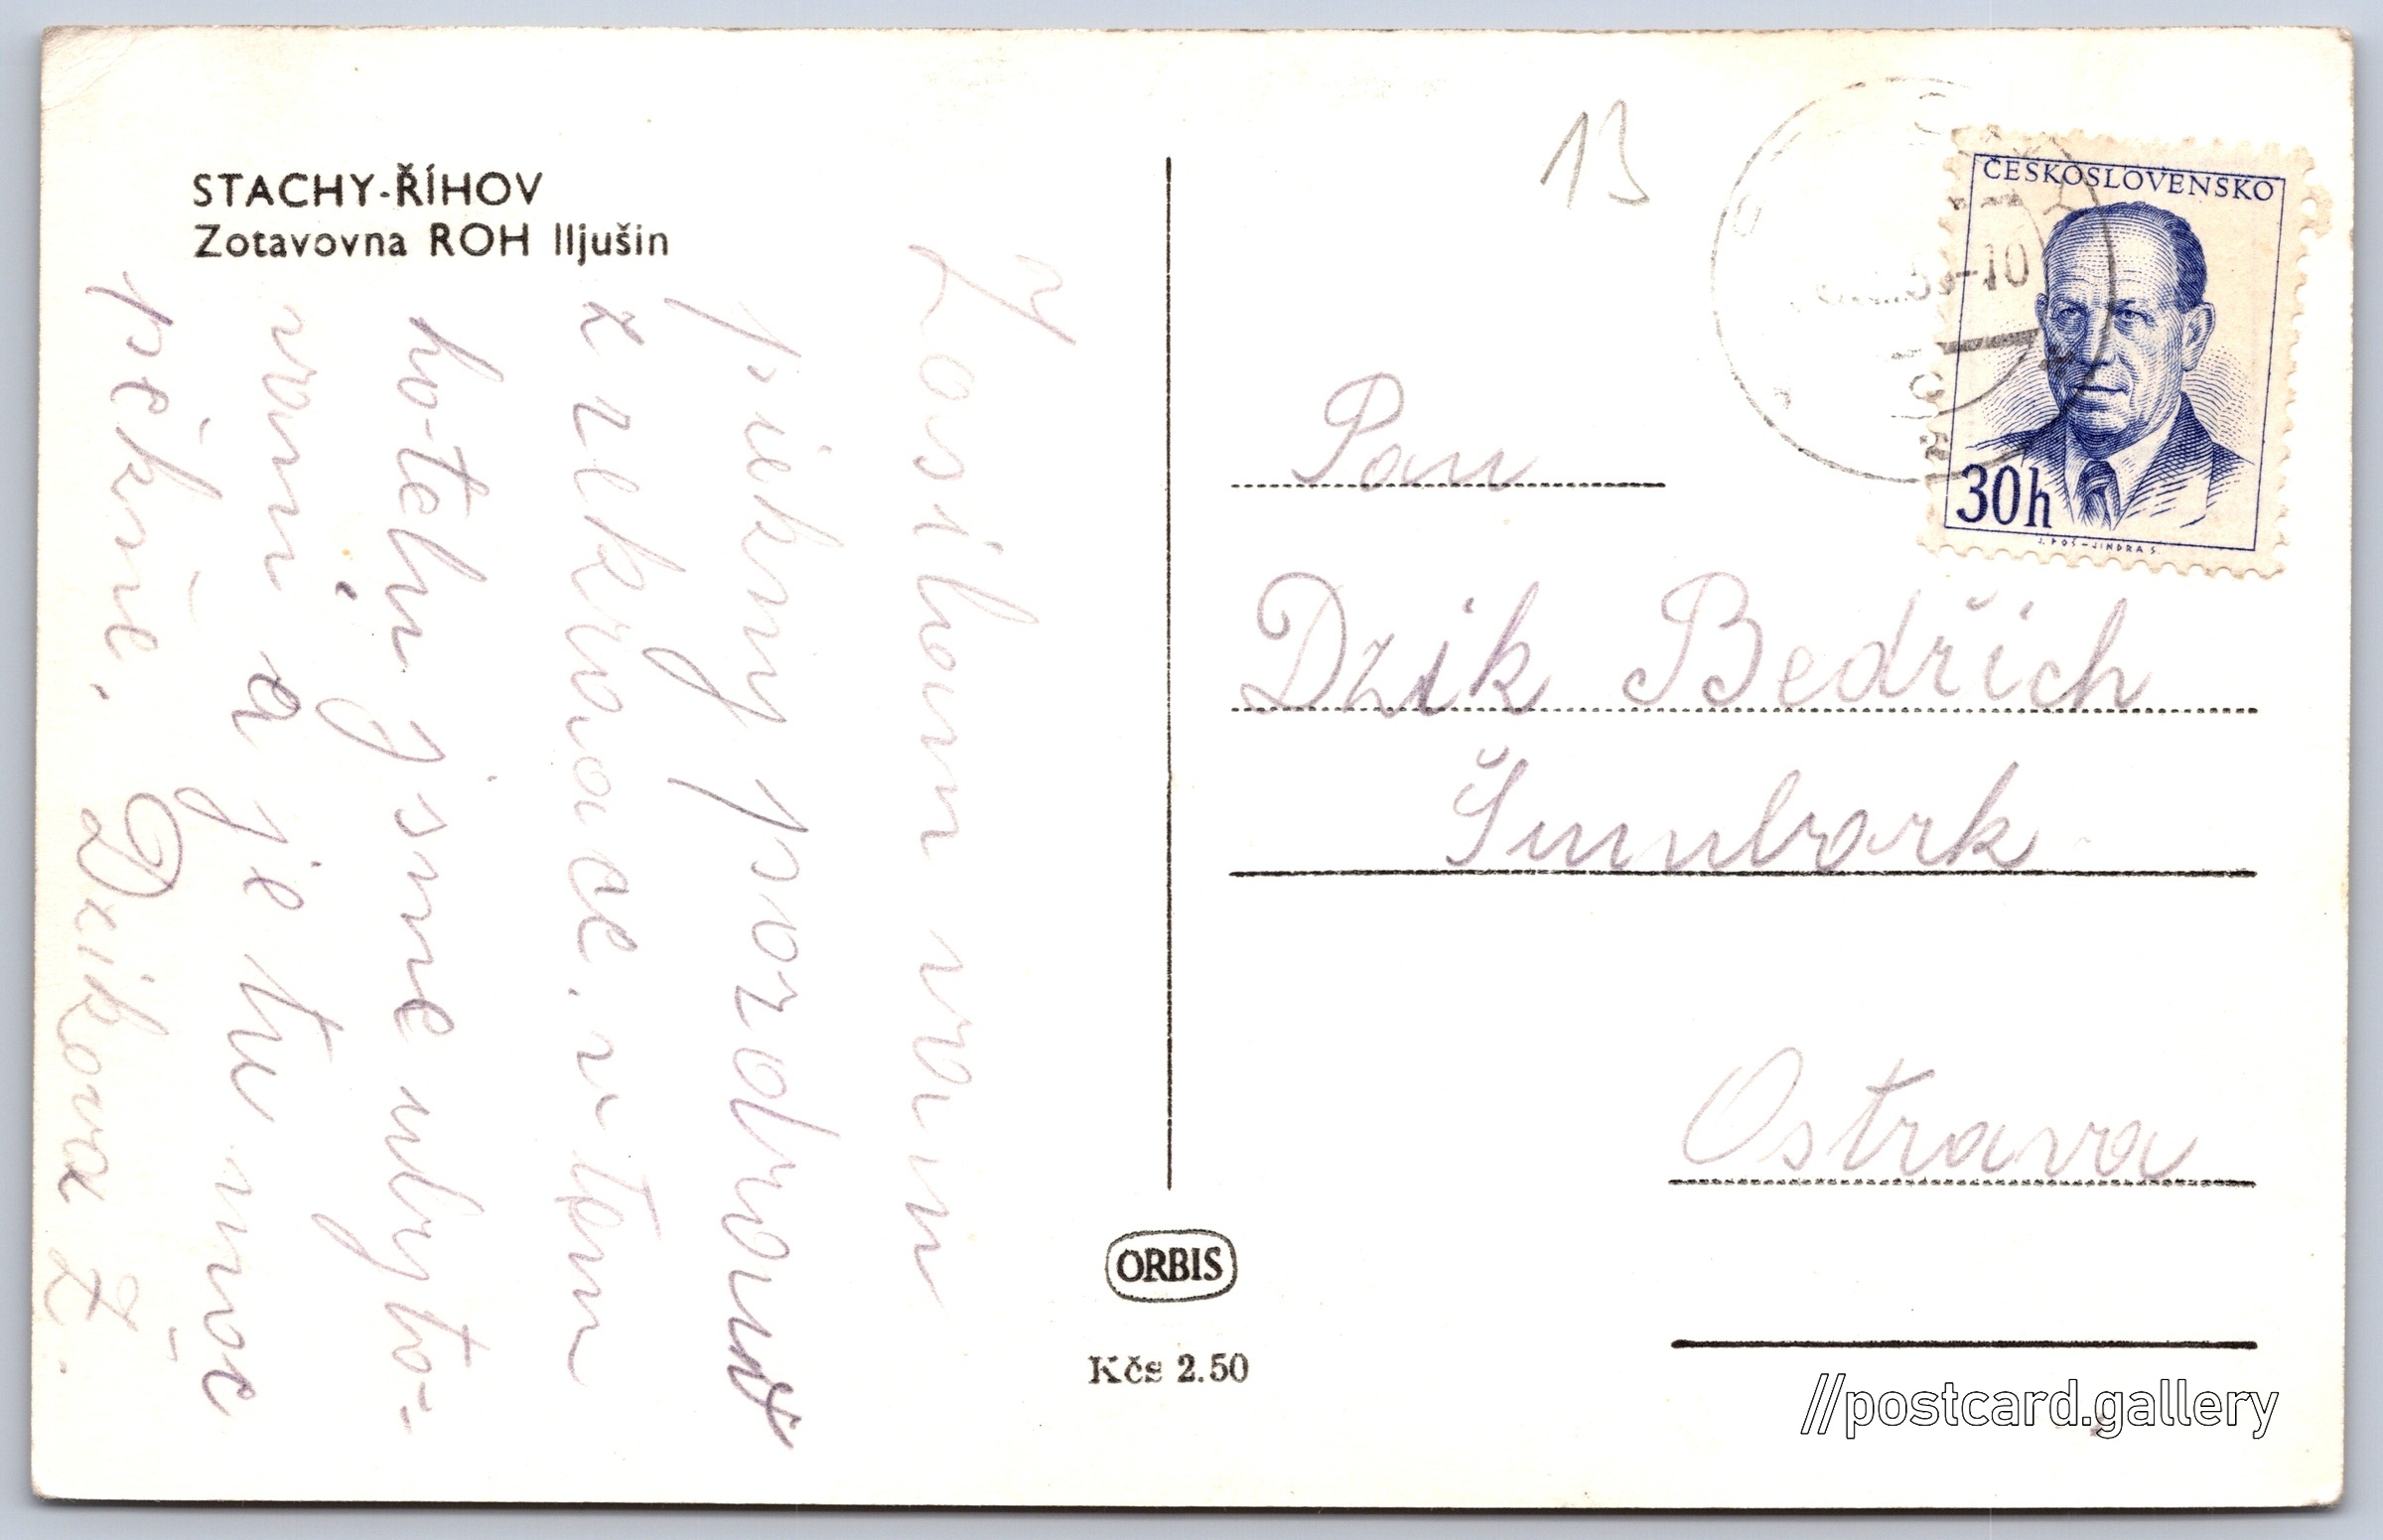 STACHY-ŘÍHOV
Zotavovna ROH Iljušin
Zasiłam vam
piekny pozdrav
z rekraace. v tom
hotelu jsme ubyto-
vani a je tu moc
pěkně.
Dzikova Ž.
ORBIS
Kčs 2.50
13
ČESKOSLOVENSKO
30h
J. POŠ - JINDRA S.
-10
Pan
Dzik Bedřich
Šumbark
Ostrava
//postcard.gallery